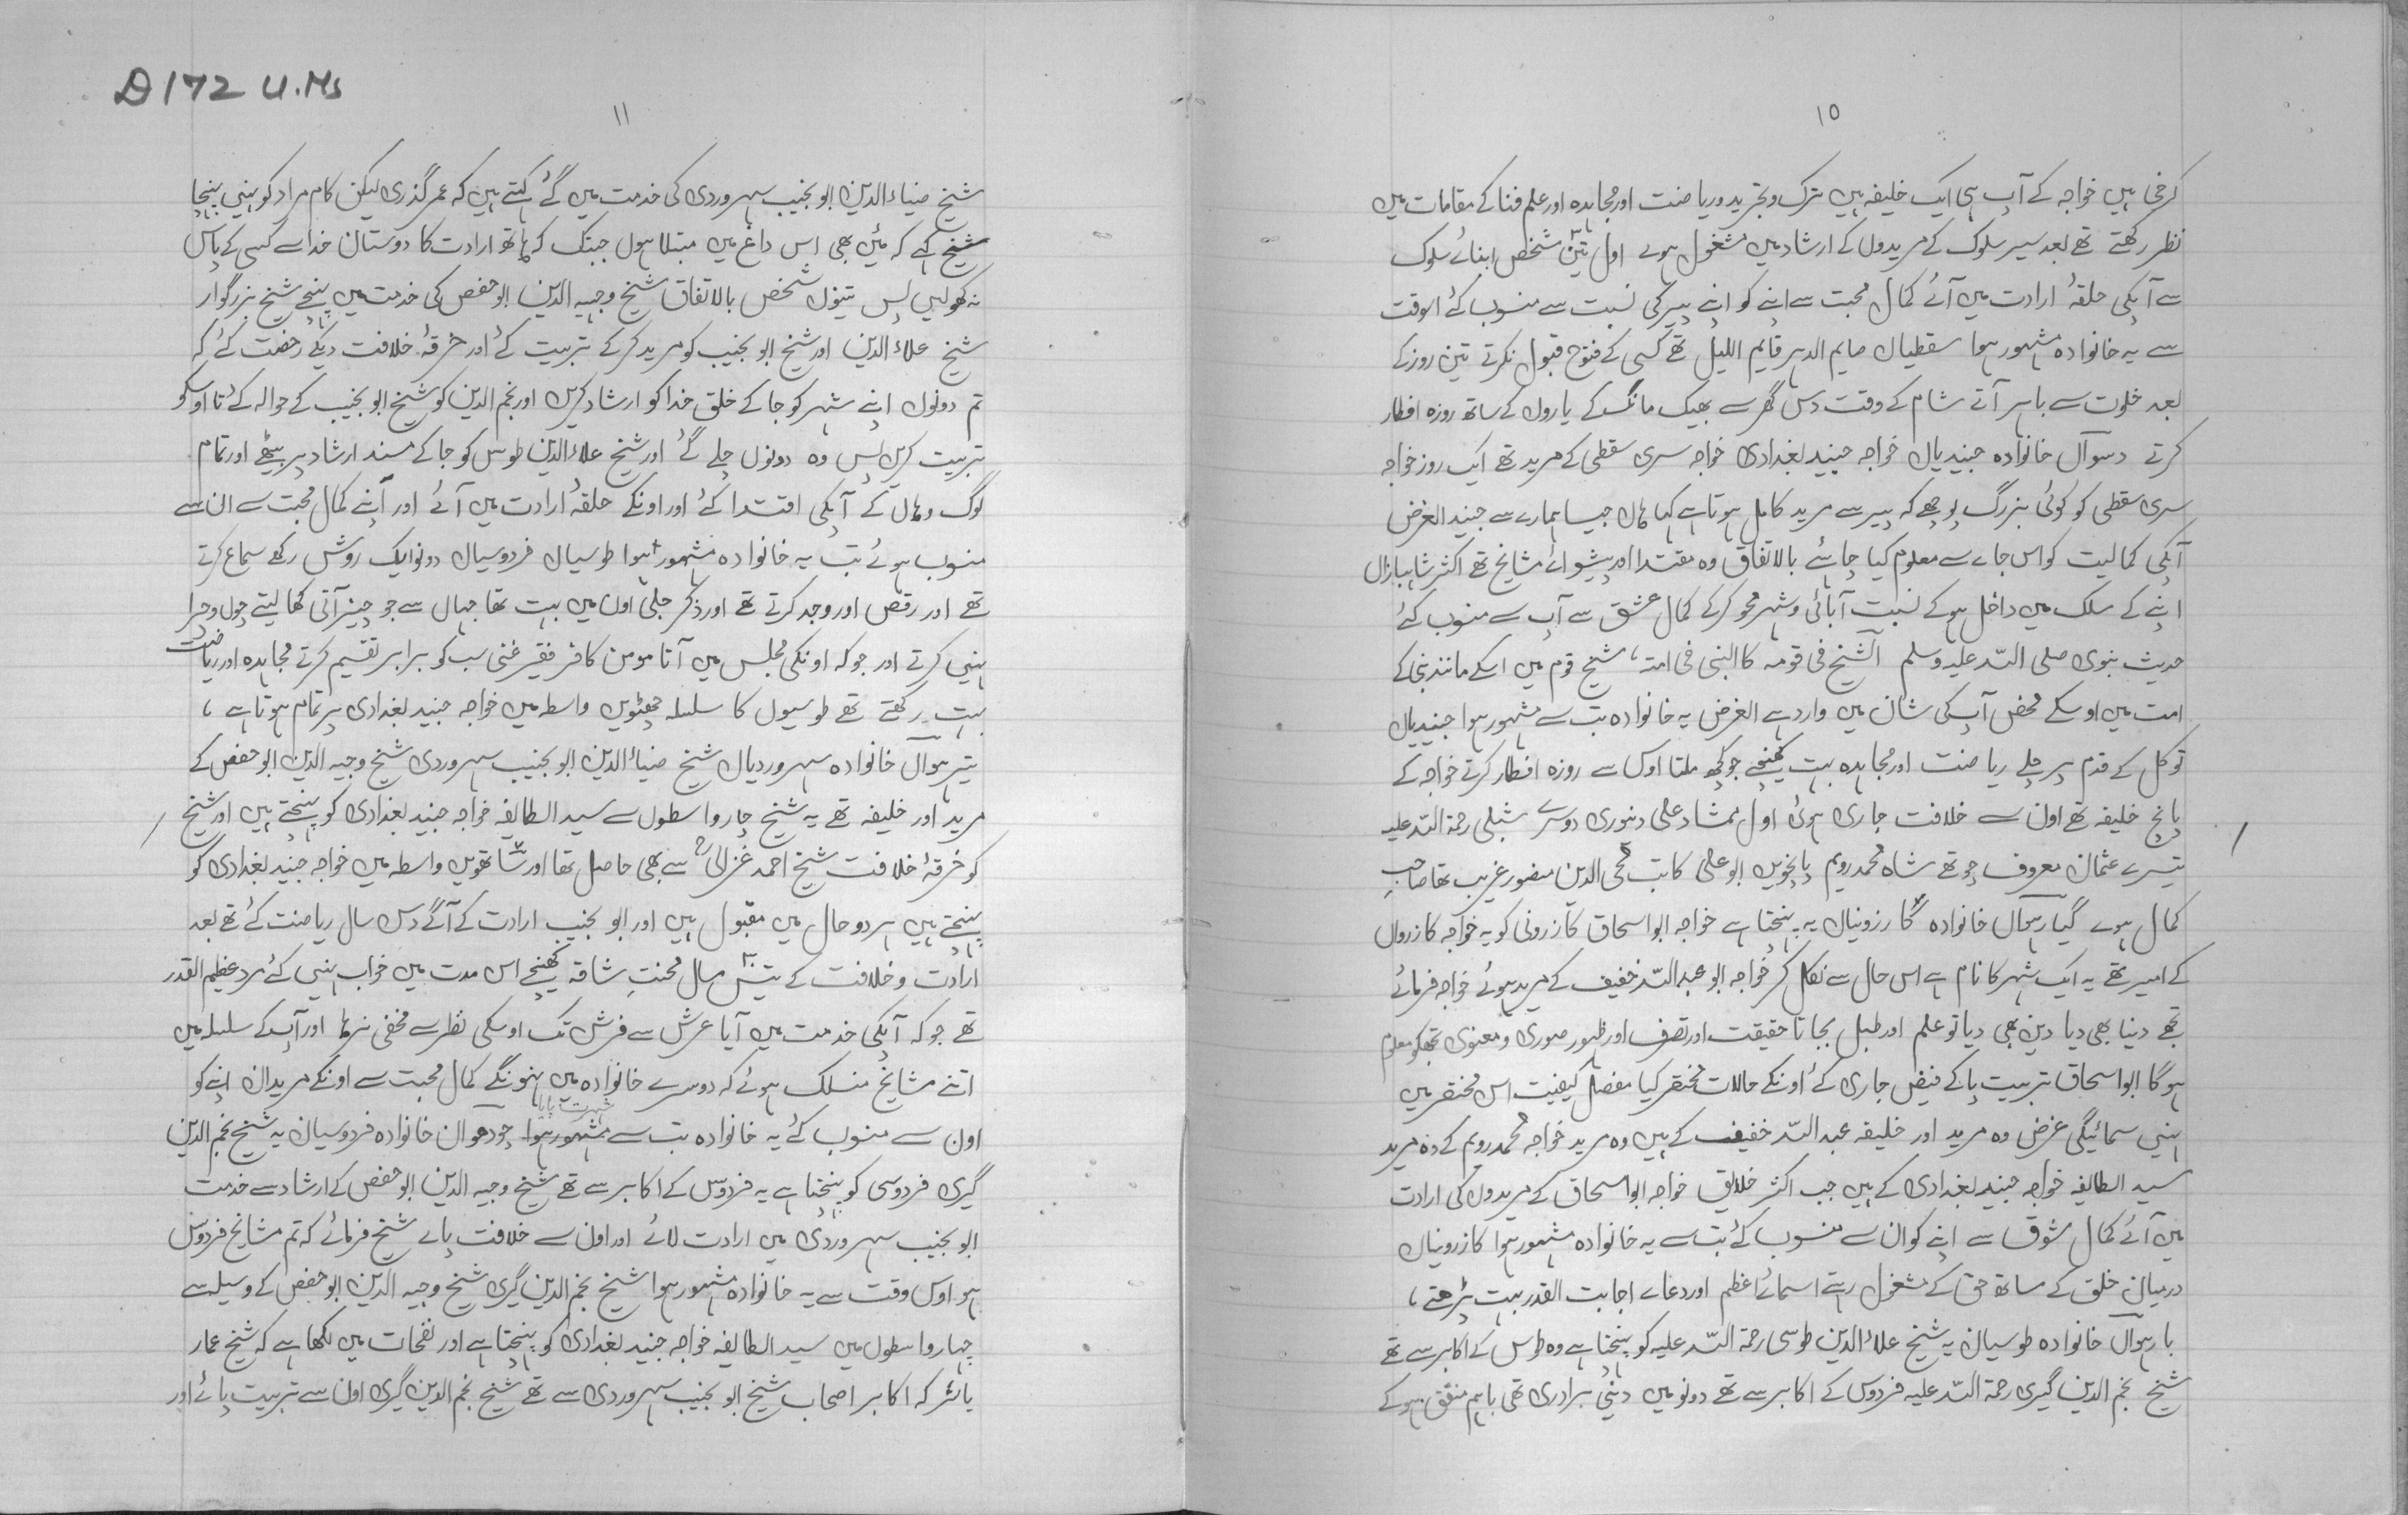 D172 U.Ms
۱۰
کرخی ہیں خواجہ کے آپ ہی ایک خلیفہ ہیں ترک و تجرید و ریاضت اور مجاہدہ اور علم فنا کے مقامات میں
نظر رکھتے تھے بعد سیر سلوک کے مریدوں کے ارشاد میں مشغول ہوے اول تین۳ شخص ابنائے سلوک
سے آپکی حلقۂ ارادت میں آئے کمال محبت سے اپنے کو اپنے پیر کی نسبت سے منسوب کئے اوقت
سے یہ خانوادہ مشہور ہوا سقطیاں صایم الدہر قایم اللیل تھے کسی کے فتوح قبول نکرتے تین روز کے
بعد خلوت سے باہر آتے شام کے وقت دس گھر سے بھیک مانگ کے یاروں کے ساتھ روزہ افطار
کرتے دسواں خانوادہ جنیدیاں خواجہ جنید بغدادی خواجہ سری سقطی کے مرید تھے ایک روز خواجہ
سری سقطی کو کوئی بزرگ پوچھے کہ پیر سے مرید کامل ہوتا ہے کہا ہاں جیسا ہمارے سے جنید الغرض
آپکی کمالیت کو اس جاے سے معلوم کیا چاہئے بالاتفاق وہ مقتدا اور پیشوائے مشایخ تھے اکثر شاہبازاں
اپنے کے سلک میں داخل ہو کے نسبت آبائی و شہر محو کر کے کمال عشق سے آپ سے منسوب کئے
حدیث نبوی صلی اللہ علیہ وسلم الشیخ فی قومہ کالنبی فی امتہ، شیخ قوم میں اسکے مانند نبی کے
امت میں اوسکے محض آپ کی شان میں وارد ہے الغرض یہ خانوادہ تب سے مشہور ہوا جنیدیاں
توکل کے قدم پر چلے ریاضت اور مجاہدہ بہت کھنچے جو کچھ ملتا اوس سے روزہ افطار کرتے خواجہ کے
پانچ خلیفہ تھے اون سے خلافت جاری ہوئی اول ممشاد علی دنوری دوسرے شبلی رحمۃ اللہ علیہ
تیسرے عثمان معروف چوتھے شاہ محمد رویم پانچویں ابو علی کاتب محی الدین منصور غریب تھا صاحب
کمال ہوے گیارہواں خانوادہ گازرونیاں یہ پہنچتا ہے خواجہ ابو اسحاق کازرونی کو یہ خواجہ کازروں
کے امیر تھے یہ ایک شہر کا نام ہے اس حال سے نکل کر خواجہ ابو عبد اللہ خفیف کے مرید ہوئے خواجہ فرمائے
تجھے دنیا بھی دیا دین بھی دیا تو علم اور طبل بجا تا حقیقت اور تصرف اور ظہور صوری و معنوی تجھکو معلوم
ہو گا ابو اسحاق تربیت پا کے فیض جاری کئے اونکے حالات مختصر کیا مفصل کیفیت اس مختصر میں
نہیں سمائیگی غرض وہ مرید اور خلیفہ عبد اللہ خفیف کے ہیں وہ مرید خواجہ محمد رویم کے وہ مرید
سید الطایفہ خواجہ جنید بغدادی کے ہیں جب اکثر خلایق خواجہ ابو اسحاق کے مریدوں کی ارادت
میں آئے کمال شوق سے اپنے کو ان سے منسوب کئے تب سے یہ خانوادہ مشہور ہوا کازرونیاں
درمیان خلق کے ساتھ حق کے مشغول رہتے اسمائے اعظم اور دعاے اجابت القدر بہت پڑھتے،
بارہواں خانوادہ طوسیان یہ شیخ علاء الدین طوسی رحمۃ اللہ علیہ کو پہنچتا ہے وہ طوس کے اکابر سے تھے
شیخ نجم الدین گیری رحمۃ اللہ علیہ فردوس کے اکابر سے تھے دونو میں دینی برادری تھی باہم متفق ہو کے
۱۱
شیخ ضیاء الدین ابو نجیب سہروردی کی خدمت میں گئے کہتے ہیں کہ عمر گذری لیکن کام مراد کو نہیں پہنچا
شیخ کہے کہ میں بھی اس داغ میں مبتلا ہوں جبتک کہ ہاتھ ارادت کا دوستان خدا سے کسی کے پاس
نہ کھولیں پس تینوں شخص بالاتفاق شیخ وجیہ الدین ابو حفص کی خدمت میں پہنچے شیخ بزرگوار
شیخ علاء الدین اور شیخ ابو نجیب کو مرید کر کے تربیت کئے اور خرقۂ خلافت دیکے رخصت کئے کہ
تم دونوں اپنے شہر کو جا کے خلق خدا کو ارشاد کریں اور نجم الدین کو شیخ ابو نجیب کے حوالہ کئے تا اوسکو
تربیت کریں پس وہ دونوں چلے گئے اور شیخ علاء الدین طوس کو جا کے مسند ارشاد پر بیٹھے اور تمام
لوگ وہاں کے آپکی اقتدا کئے اور اونکے حلقۂ ارادت میں آئے اور اپنے کمال محبت سے ان سے
منسوب ہوئے تب یہ خانوادہ مشہور ہوا طوسیاں فردوسیاں دونو ایک روش رکھے سماع کرتے
تھے اور رقص اور وجد کرتے تھے اور ذکر جلی اون میں بہت تھا جہاں سے جو چیز آتی کھا لیتے چوں و چرا
نہیں کرتے اور جو کہ اونکی مجلس میں آتا مومن کافر فقیر غنی سب کو برابر تقسیم کرتے مجاہدہ اور ریاضت
بہت رکھتے تھے طوسیوں کا سلسلہ چھٹویں واسطہ میں خواجہ جنید بغدادی پر تمام ہوتا ہے،
تیرہواں خانوادہ سہروردیاں شیخ ضیاء الدین ابو نجیب سہروردی شیخ وجیہ الدین ابو حفص کے
مرید اور خلیفہ تھے یہ شیخ چار واسطوں سے سید الطایفہ خواجہ جنید بغدادی کو پہنچتے ہیں اور شیخ
کو خرقۂ خلافت شیخ احمد غزالی سے بھی حاصل تھا اور ساتھویں واسطہ میں خواجہ جنید بغدادی کو
پہنچتے ہیں ہر دو حال میں مقبول ہیں اور ابو نجیب ارادت کے آگے دس سال ریاضت کئے تھے بعد
ارادت و خلافت کے تیس سال محنت شاقہ کھنچے اس مدت میں خواب نہیں کئے مرد عظیم القدر
تھے جو کہ آپکی خدمت میں آیا عرش سے فرش تک اوسکی نظر سے مخفی نرہا اور آپ کے سلسلہ میں
اتنے مشایخ منسلک ہوئے کہ دوسرے خانوادہ میں نہونگے کمال محبت سے اونکے مریداں اپنے کو
اون سے منسوب کئے یہ خانوادہ تب سے مشہور ہوا شہرت پایا چودھواں خانوادہ فردوسیاں یہ شیخ نجم الدین
گیری فردوسی کو پہنچتا ہے یہ فردوس کے اکابر سے تھے شیخ وجیہ الدین ابو حفص کے ارشاد سے خدمت
ابو نجیب سہروردی میں ارادت لائے اور اون سے خلافت پاے شیخ فرمائے کہ تم مشایخ فردوس
ہو اوس وقت سے یہ خانوادہ مشہور ہوا شیخ نجم الدین گیری شیخ وجیہ الدین ابو حفص کے وسیلہ سے
چہار واسطوں میں سید الطایفہ خواجہ جنید بغدادی کو پہنچتا ہے اور نفحات میں لکھا ہے کہ شیخ عمار
یاسر کہ اکابر اصحاب شیخ ابو نجیب سہروردی سے تھے شیخ نجم الدین گیری اون سے تربیت پائے اور